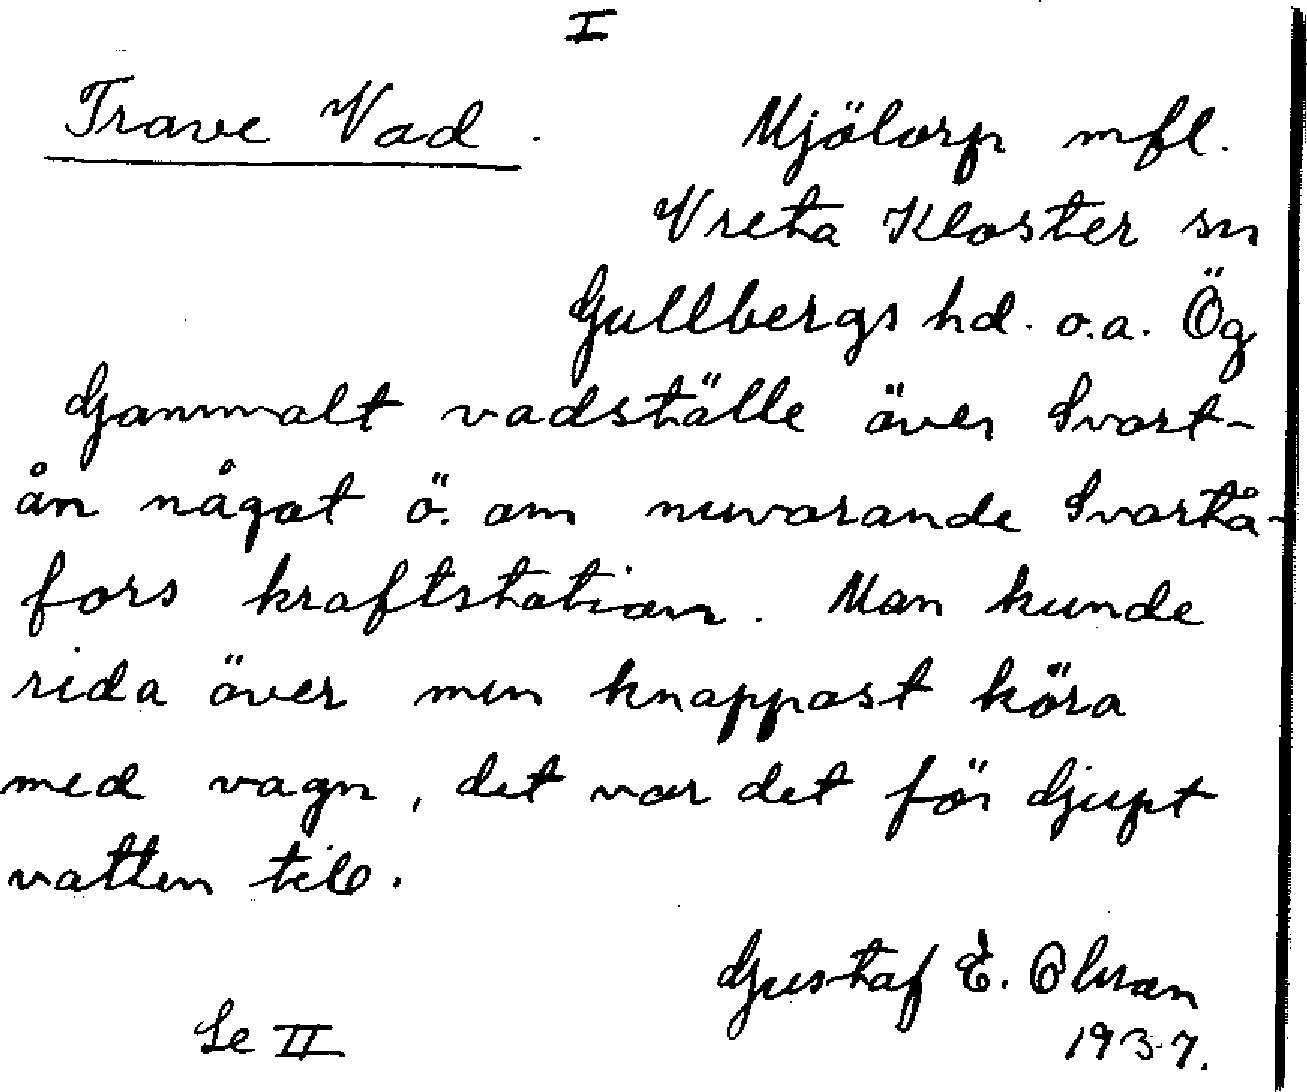 I
Trave Vad. Mjölorp mfl.
Vreta Kloster sn
Gullbergs hd. o.a. Ög
Gammalt vadställe över Svart-
ån något ö. om nuvarande Svartå-
fors kraftstation. Man kunde
rida över men knappast köra
med vagn, det var det för djupt
vatten till.
Gustaf E. Olsson
Se II 1937.